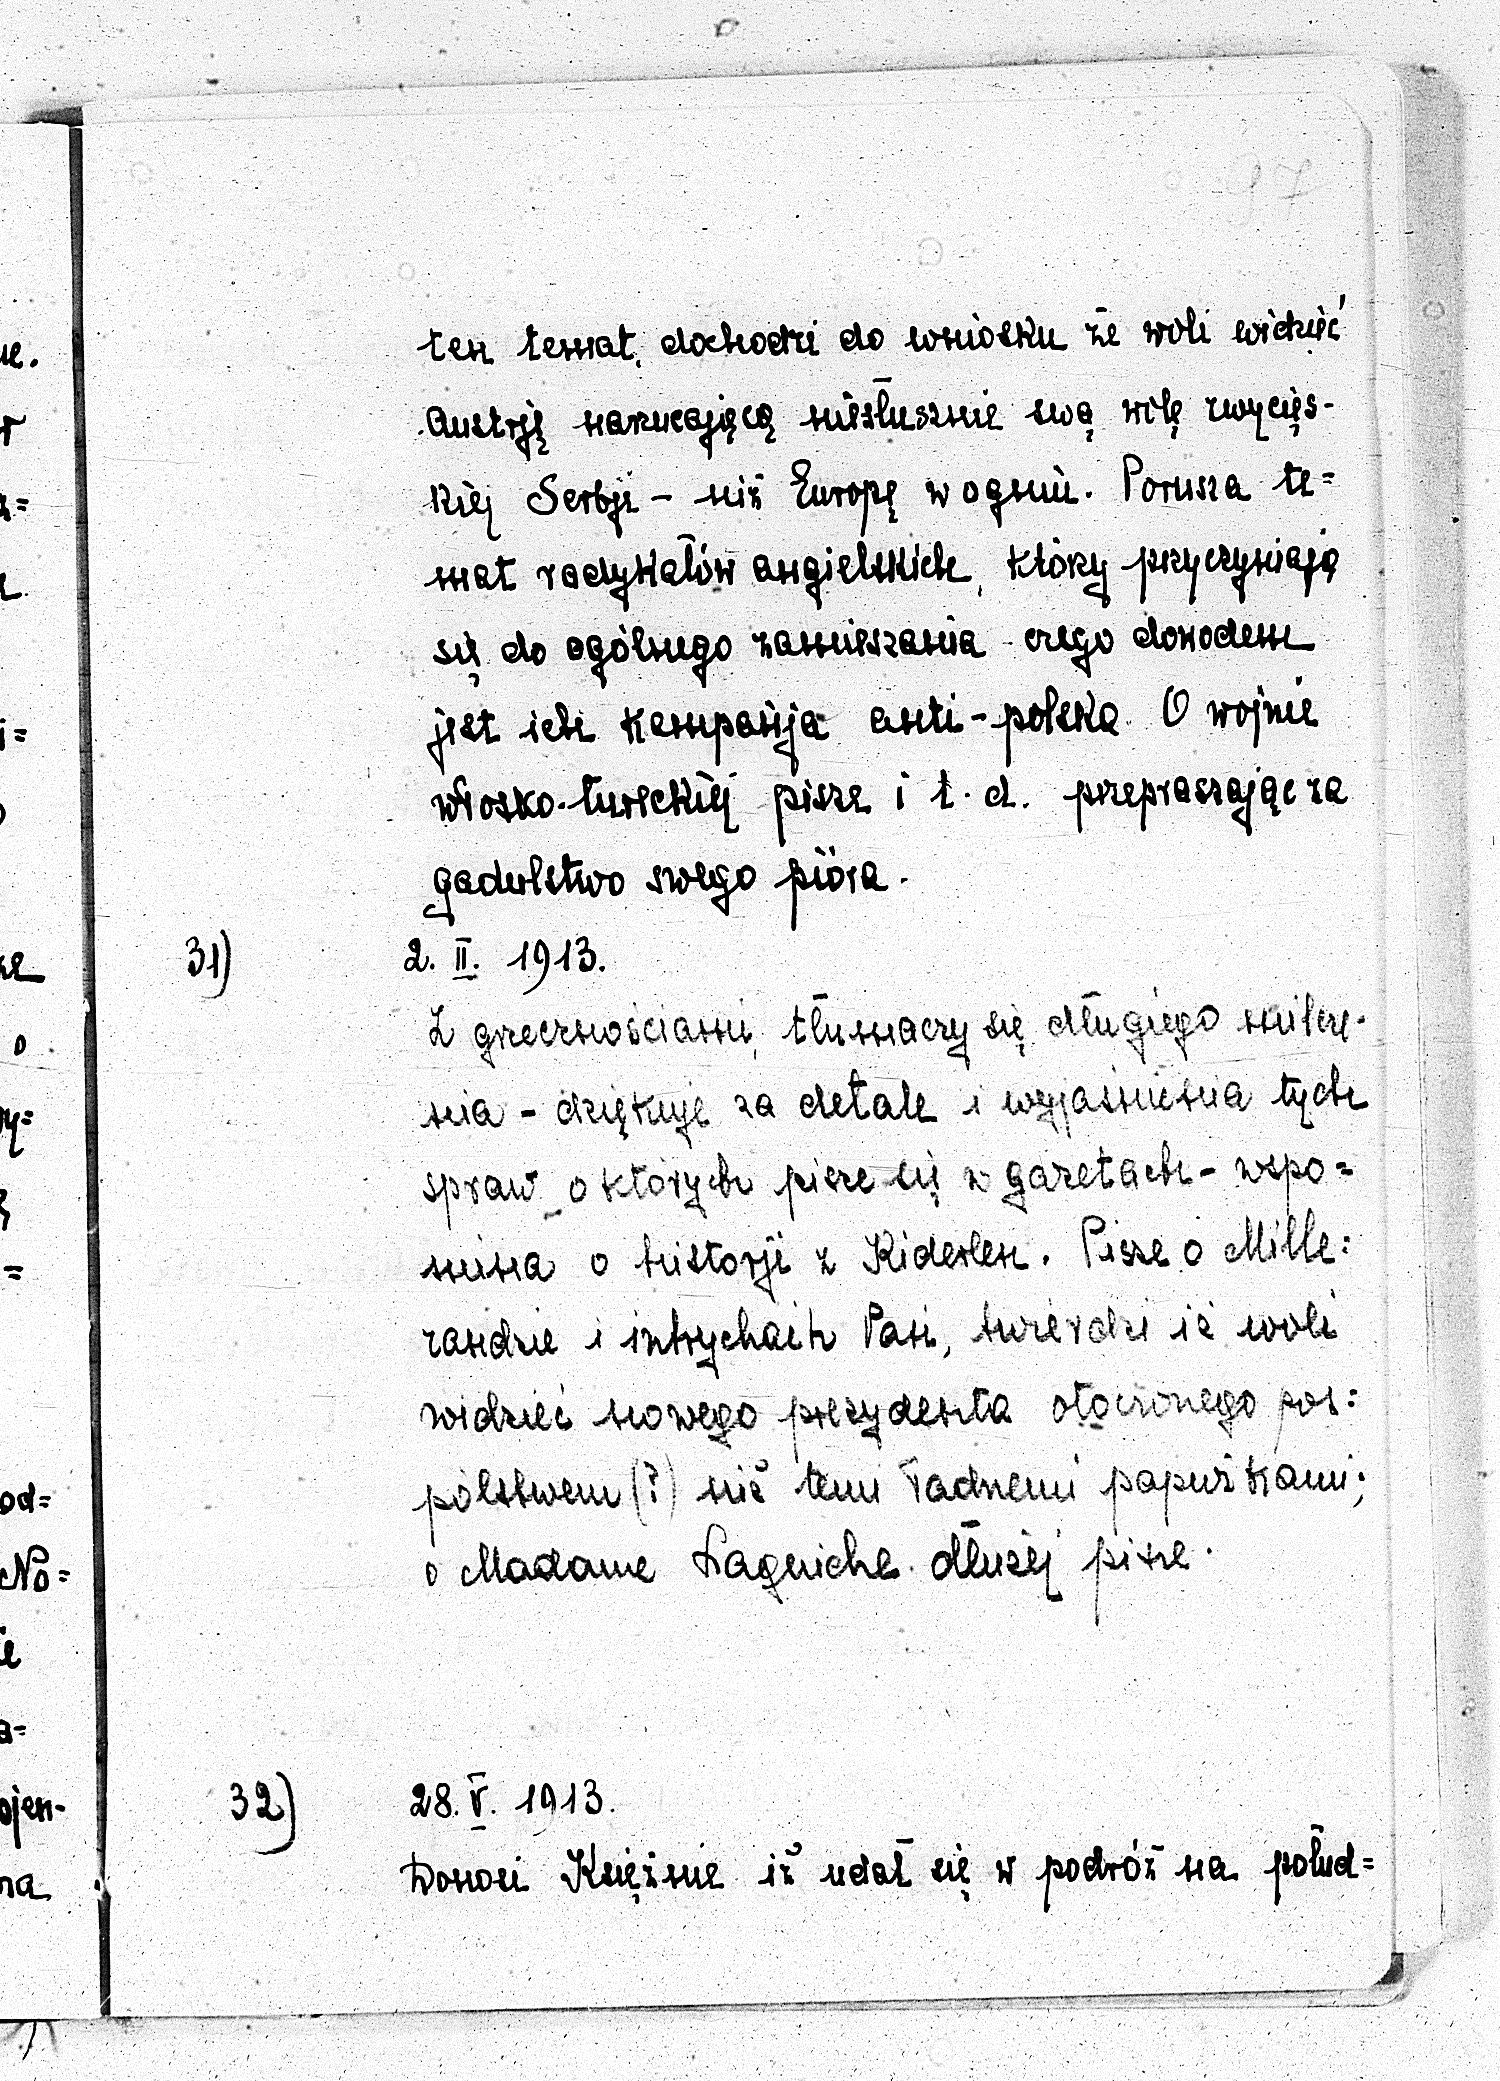 ten temat, dochodzi do wniosku że woli widzieć
Austrję narzucającą niesłusznie swą wolę zwycięs-
kiej Serbji – niż Europę w ogniu. Porusza te=
mat radykałów angielskich, którzy przyczyniają
się do ogólnego zamieszania czego dowodem
jest ich kampanja anti-polska. O wojnie
włosko-tureckiej pisze i t. d. przepraszając za
gadulstwo swego pióra.
31) 2. II. 1913.
Z grzecznościami, tłumaczy się długiego milcze-
nia – dziękuje za detale i wyjaśnienia tych
spraw o których pisze się w gazetach – wspo=
mina o historji z Kiderlen. Pisze o Mille=
randzie i intrygach Pań, twierdzi iż woli
widzieć nowego prezydenta otoczonego pos=
pólstwem (?) niż temi ładnemi papużkami;
o Madame Laguiche dłużej pisze.
32) 28. V. 1913.
Donosi Księżnie iż udał się w podróż na połud=